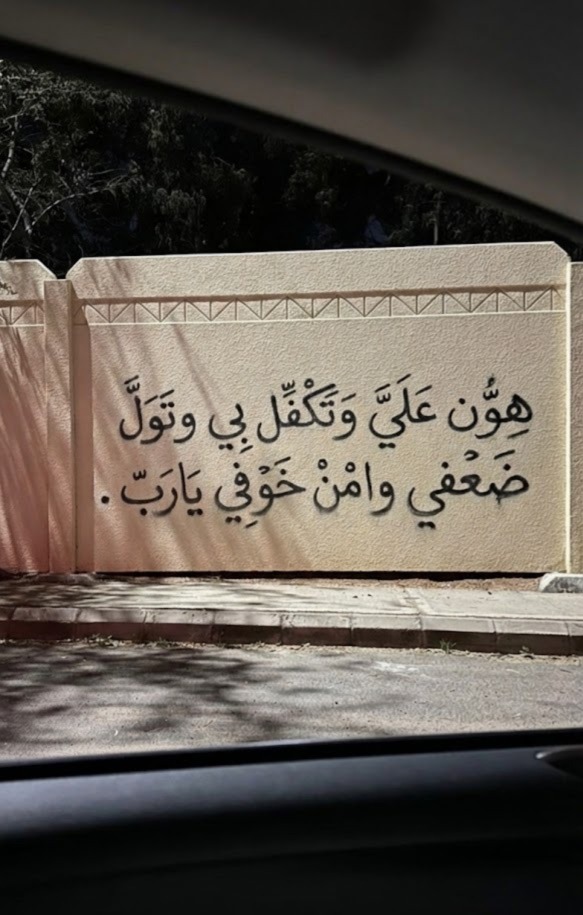 هِوُّن عَلَيَّ وَتَكْفِّل بِي وتَوَلَّ
ضَعْفي وامْنْ خَوْفِي يَارَبّ .